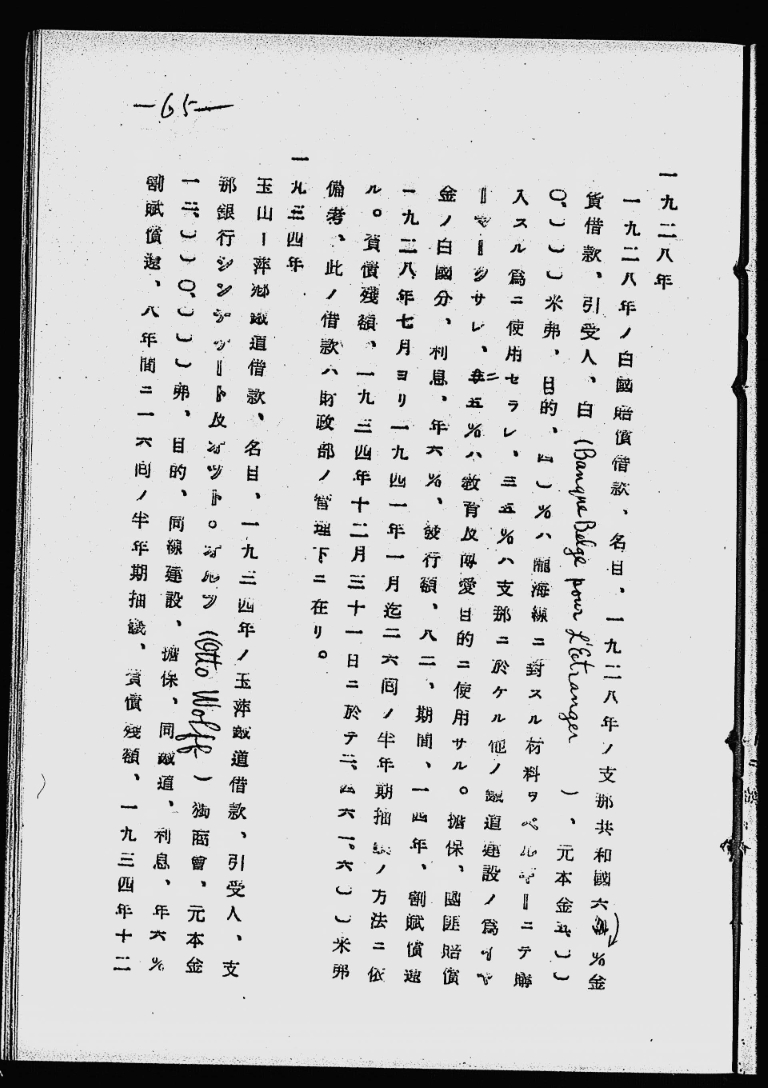 —65—
一九二八年
一九二八年ノ白國賠償借款、名目、一九二八年ノ支那共和國六%金
貨借款、引受人、白(Banque Belge pour L'Etranger)、元本金五〇〇
〇、〇〇〇米弗、目的、四〇%ハ隴海線ニ對スル材料ヲベルギーニテ購
入スル爲ニ使用セラレ、三五%ハ支那ニ於ケル他ノ鐵道建設ノ爲イヤ
ーマークサレ、二五%ハ敎育及博愛目的ニ使用サル。擔保、團匪賠償
金ノ白國分、利息、年六%、發行額、八二、期間、一四年、割賦償還
一九二八年七月ヨリ一九四一年一月迄二六回ノ半年期抽籤ノ方法ニ依
ル。負債殘額、一九三四年十二月三十一日ニ於テ二、四六一、六〇〇米弗
備考、此ノ借款ハ財政部ノ管理下ニ在リ。
一九三四年
玉山ー萍鄕鐵道借款、名目、一九三四年ノ玉萍鐵道借款、引受人、支
那銀行シンヂケート及オットー。ヴォルフ(Otto Wolff)獨商會、元本金
一二、〇〇〇、〇〇〇弗、目的、同線建設、擔保、同鐵道、利息、年六%
割賦償還、八年間ニ一六回ノ半年期抽籤、負債殘額、一九三四年十二